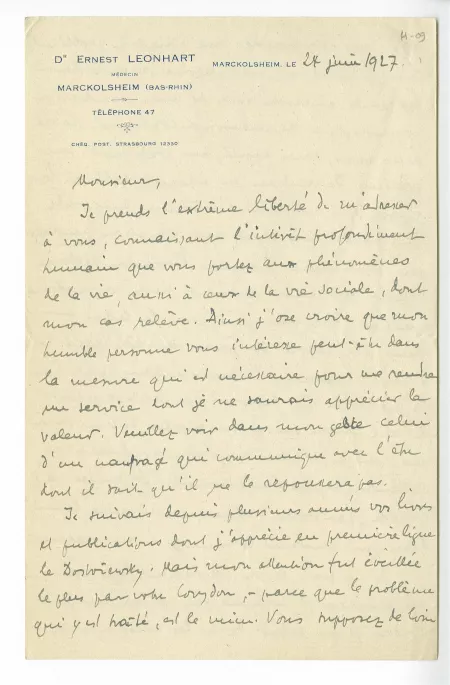 M-09
Dr ERNEST LEONHART
MÉDECIN
MARCKOLSHEIM (BAS-RHIN)
TÉLÉPHONE 47
CHÈQ. POST. STRASBOURG 12350
MARCKOLSHEIM, LE 24 juin 1927.
Monsieur,
Je prends l'extrême liberté de m'adresser
à vous, connaissant l'intérêt profondément
humain que vous portez aux phénomènes
de la vie, aussi à ceux de la vie sociale, dont
mon cas relève. Ainsi j'ose croire que mon
humble personne vous intéresse peut-être dans
la mesure qui est nécessaire pour me rendre
un service dont je ne saurais apprécier la
valeur. Veuillez voir dans mon geste celui
d'un naufragé qui communique avec l'être
dont il sait qu'il ne le repoussera pas.
Je suivais depuis plusieurs années vos livres
et publications dont j'apprécie en première ligne
le Dostoïewsky. Mais mon attention fut éveillée
le plus par votre Corydon, – parce que le problème
qui y est traité, est le mien. Vous supposez de loin